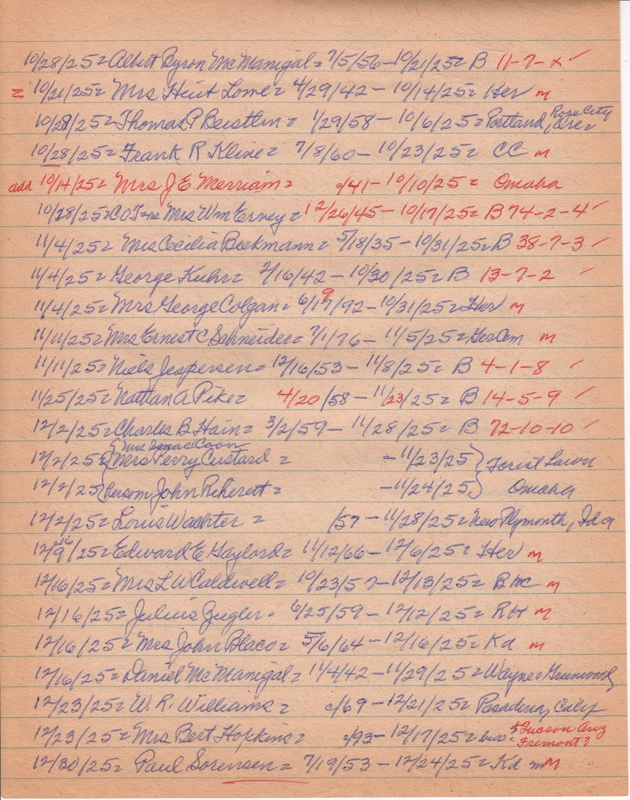 10/28/25= Albert Byron McManigal = 7/5/56 - 10/21/25= B 11-7-x ✓
= 10/21/25= Mrs Hiut Lowe = 4/29/42 - 10/14/25= Her m
10/28/25= Thomas P Beistlin = 1/29/58 - 10/6/25= Portland, Rose City
10/28/25= Frank R Kline = 7/8/60 - 10/23/25= CC m
add 10/14/25= Mrs J E Merriam = c/41 - 10/10/25= Omaha
10/28/25= Mrs Wm Erney = 12/26/45 - 10/17/25= B 74-2-4 ✓
11/4/25= Mrs Cecilia Beekmann = 5/18/35 - 10/31/25= B 38-7-3 ✓
11/4/25= George Kuhr = 2/16/42 - 10/30/25= B 13-7-2 ✓
11/4/25= Mrs George Colgan = 6/19/92 - 10/31/25= Her m
11/11/25= Mrs Ernest C Schneider = 7/1/76 - 11/5/25= GerCem m
11/11/25= Niels Jespersen = 12/16/53 - 11/8/25= B 4-1-8 ✓
11/25/25= Nathan A Pike = 4/20/58 - 11/23/25= B 14-5-9 ✓
12/2/25= Charles B Hain = 3/2/59 - 11/28/25= B 72-10-10 ✓
Mrs Isaac Coon
12/2/25= {Mrs Perry Custard = - 11/23/25} Forest Lawn
12/2/25 {person, John Rickerett = - 11/24/25} Omaha
12/2/25= Louis Wachter = /57 - 11/28/25= New Plymouth, Ida
12/9/25= Edward E Gaylord = 11/12/66 - 12/6/25= Her m
12/16/25= Mrs L W Caldwell = 10/23/57 - 12/13/25= B m
12/16/25= Julius Zugler = 6/25/59 - 12/12/25= RH m
12/16/25= Mrs John Blaco = 5/6/64 - 12/16/25= Kd m
12/16/25= Daniel McManigal = 11/4/42 - 11/29/25= Wayne
12/23/25= W. R. Williams = c/69 - 12/21/25= Pasadena, Calif
12/23/25= Mrs Bert Hopkins = c/93 - 12/17/25= bur. Tucson Ariz
Fremont?
12/30/25= Paul Sorensen = 7/19/53 - 12/24/25= Kd m